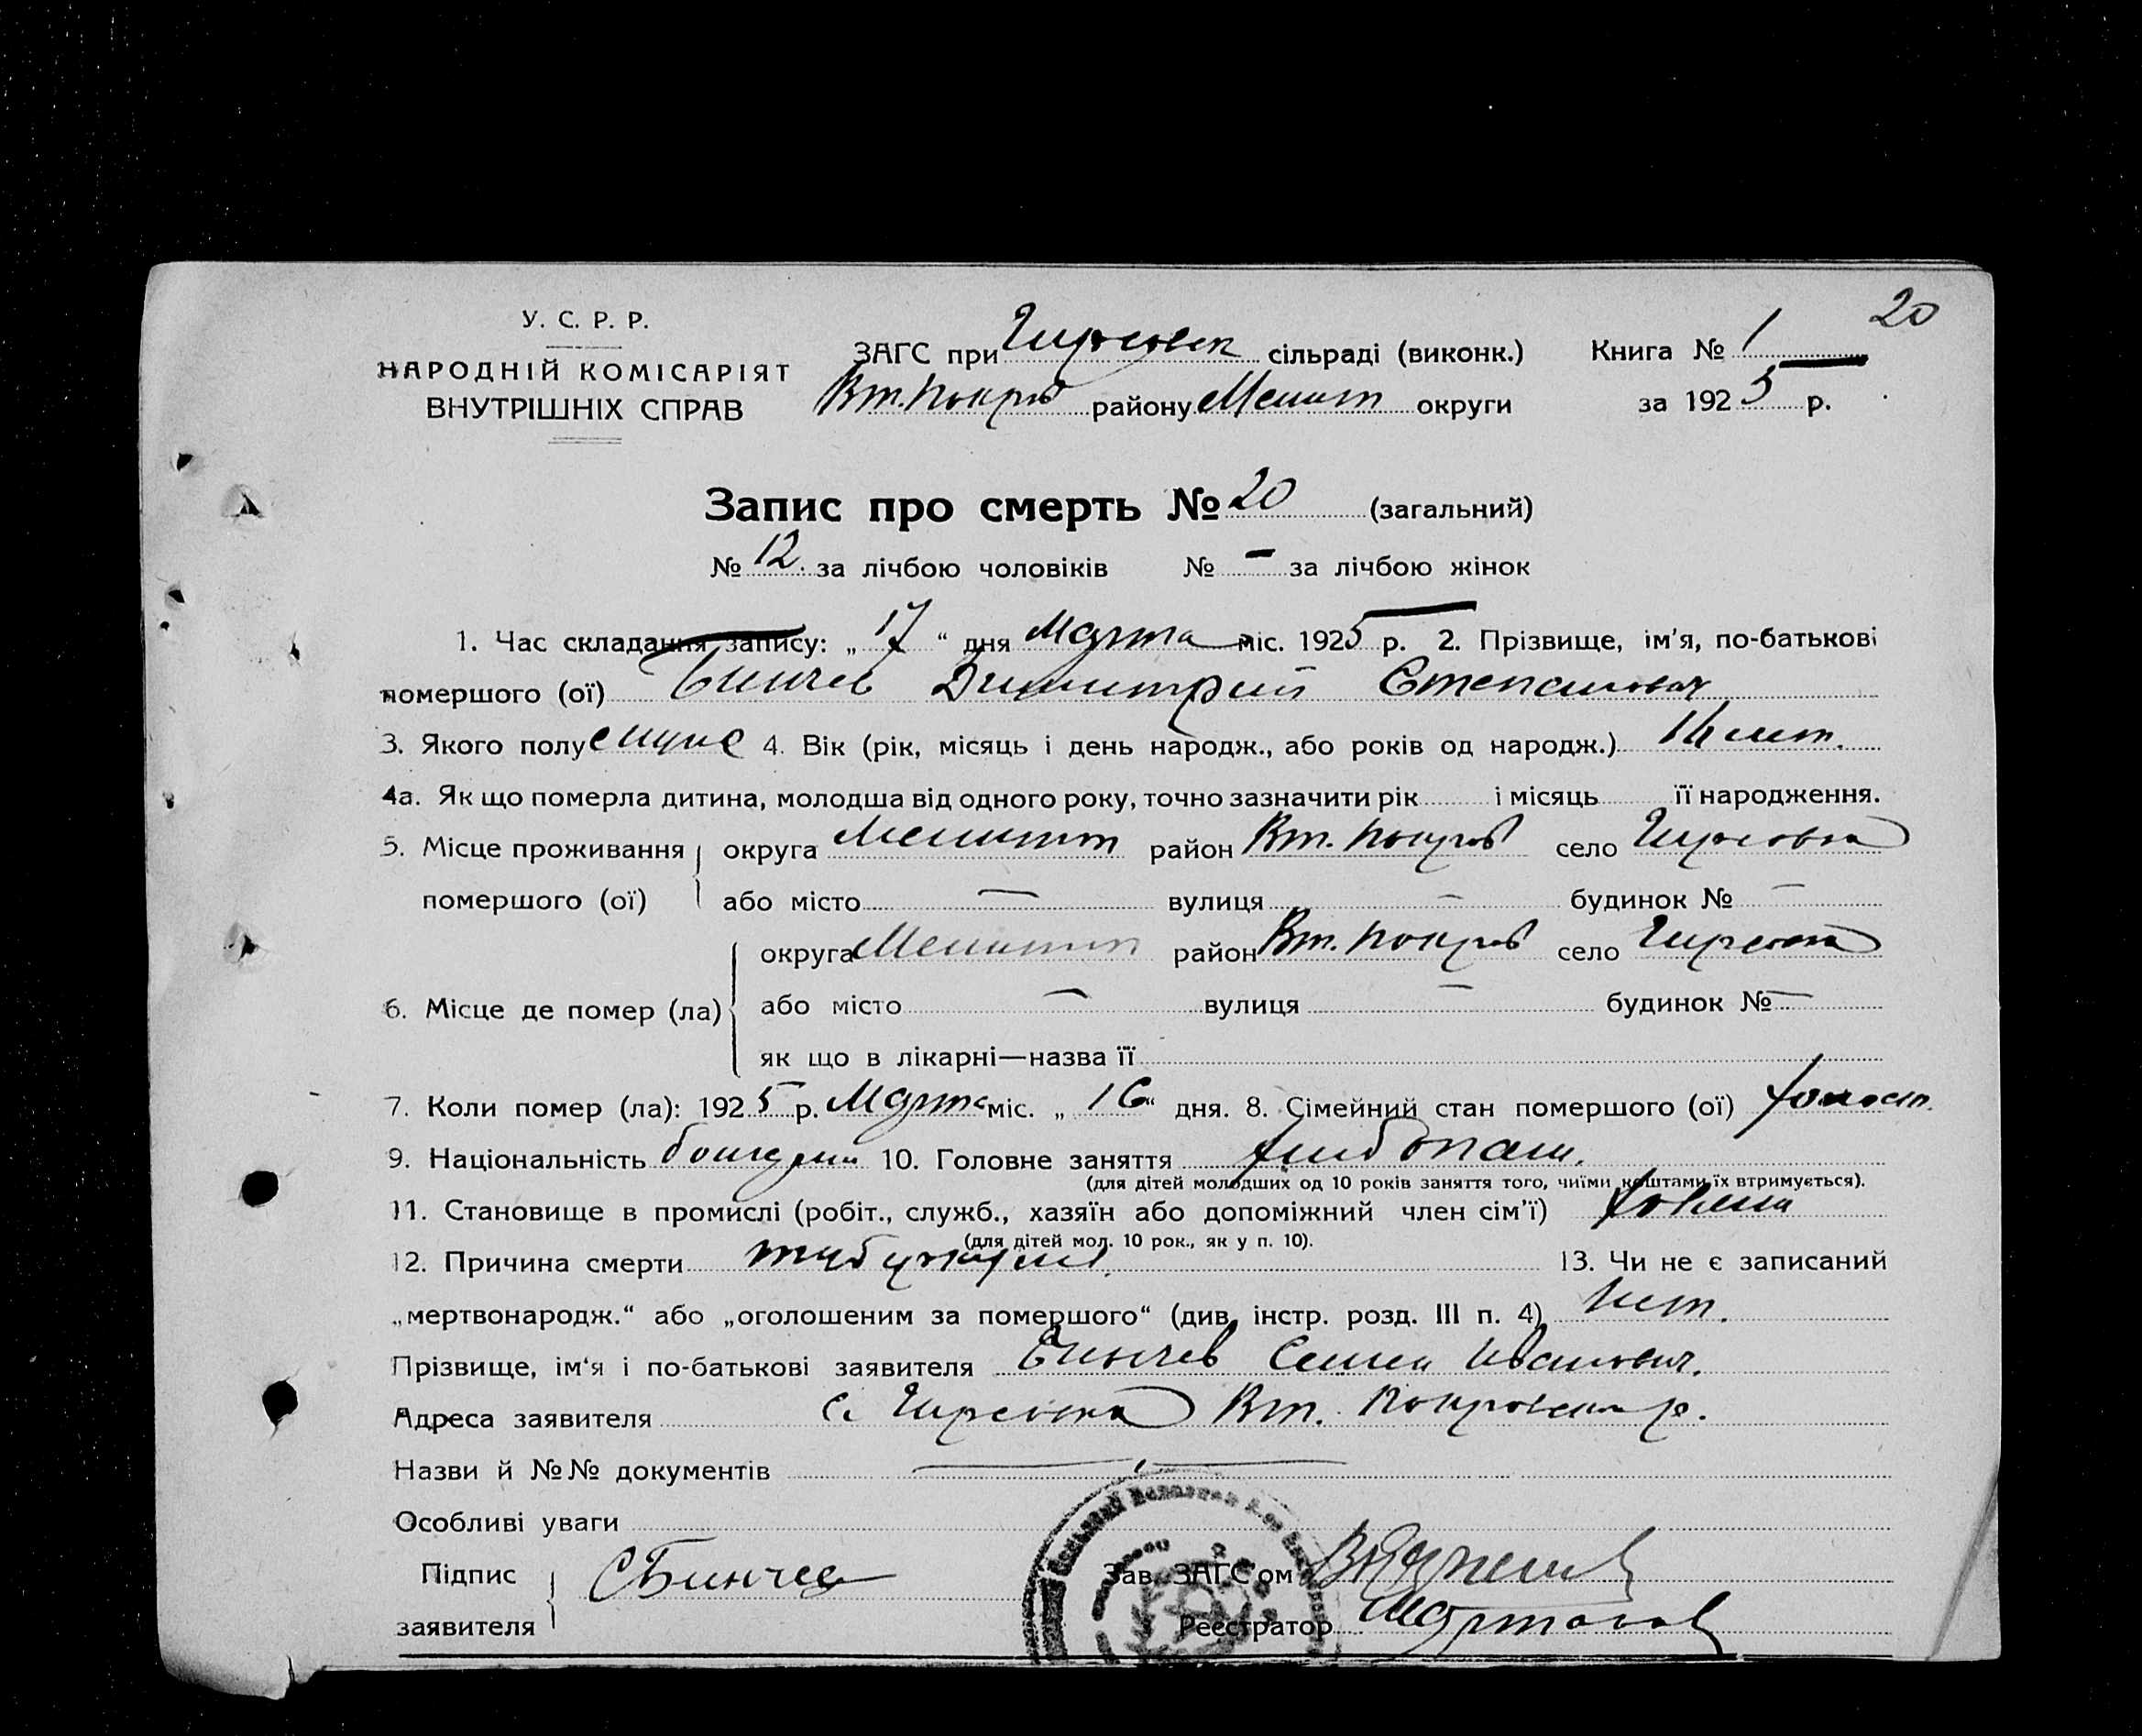 20
У. С. Р. Р.
НАРОДНІЙ КОМІСАРІЯТ
ВНУТРІШНІХ СПРАВ
ЗАГС при Гирсовск сільраді (виконк.) Книга № 1
Вт. Покров району Мелит округи за 1925 р.
Запис про смерть № 20 (загальний)
№ 12. за лічбою чоловіків № — за лічбою жінок
1. Час складання запису: „ 17 “ дня Марта міс. 1925 р. 2. Прізвище, ім’я, по-батькові
помершого (ої) Бинчев Димитрий Степанович
3. Якого полу 4. Вік (рік, місяць і день народж., або років од народж.) лет.
4а. Як що померла дитина, молодша від одного року, точно зазначити рік і місяць її народження.
5. Місце проживання округа Мелитп район Вт. Покров село Гирсовка
помершого (ої) або місто — вулиця — будинок № —
округа Мелитп район Вт. Покров село Гирсовка
6. Місце де помер (ла) або місто — вулиця — будинок № —
як що в лікарні—назва її
7. Коли помер (ла): 1925 р. Марта міс. „ 16 “ дня. 8. Сімейний стан помершого (ої) холост.
9. Національність болгарин 10. Головне заняття хлебопаш.
(для дітей молодших од 10 років заняття того, чиїми коштами їх втримується).
11. Становище в промислі (робіт., служб., хазяїн або допоміжний член сім’ї)
(для дітей мол. 10 рок., як у п. 10).
12. Причина смерти туберкулез. 13. Чи не є записаний
„мертвонародж.“ або „оголошеним за помершого“ (див. інстр. розд. III п. 4) Нет.
Прізвище, ім‘я і по-батькові заявителя Бинчев Семен Иванович.
Адреса заявителя с. Гирсовка Вт. Покровска р.
Назви й №№ документів
Особливі уваги
Підпис СБинчев Зав. ЗАГС’ом
заявителя Реєстратор